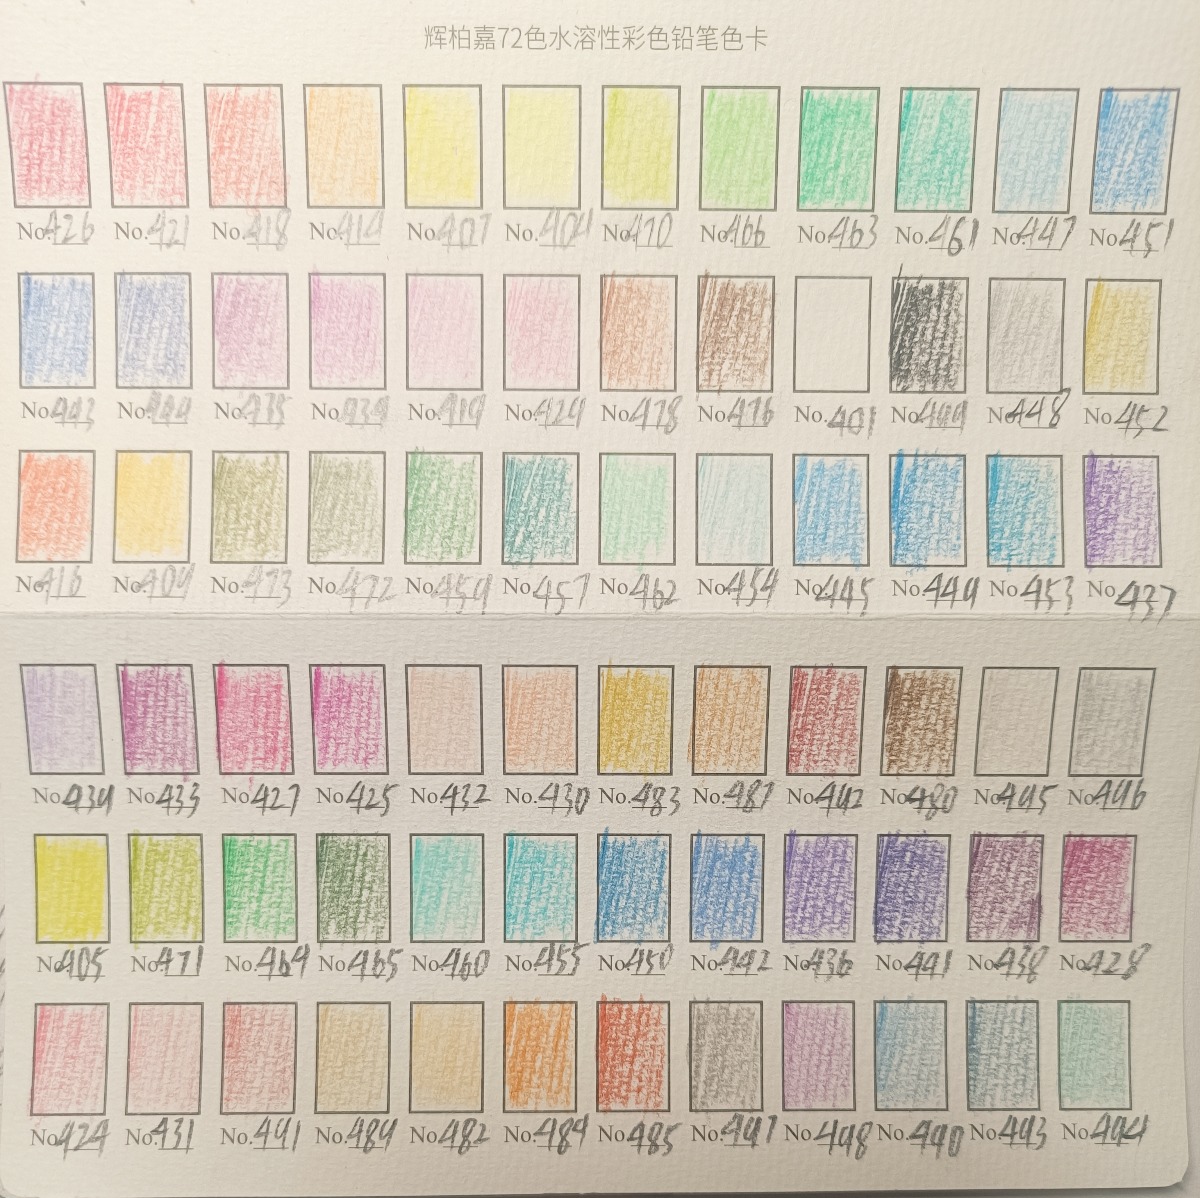 辉柏嘉72色水溶性彩色铅笔色卡
No.426 No.421 No.418 No.414 No.407 No.404 No.470 No.466 No.463 No.461 No.447 No.451
No.443 No.444 No.435 No.434 No.419 No.429 No.478 No.476 No.401 No.499 No.448 No.452
No.416 No.409 No.473 No.472 No.459 No.457 No.462 No.454 No.445 No.449 No.453 No.437
No.439 No.433 No.427 No.425 No.432 No.430 No.483 No.487 No.492 No.480 No.495 No.496
No.405 No.471 No.464 No.465 No.460 No.455 No.450 No.442 No.436 No.441 No.438 No.428
No.424 No.431 No.491 No.489 No.482 No.484 No.485 No.497 No.498 No.490 No.493 No.494